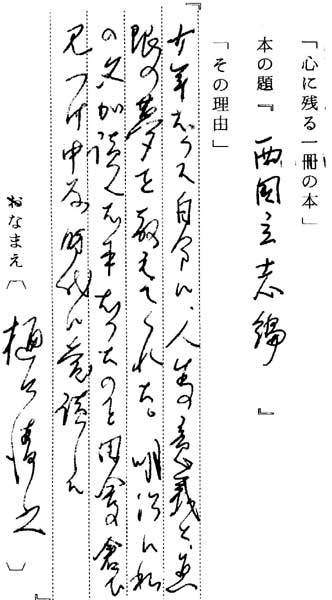 「心に残る一冊の本」
本の題『西国立志編』
「その理由」
少年だった自分に、人生の意義と、無
限の夢を教えてくれた。明治に私
の父が読んだ本だったのを田舎の倉で
見つけ中学時代に愛読した
』
おなまえ〔樋口清之〕